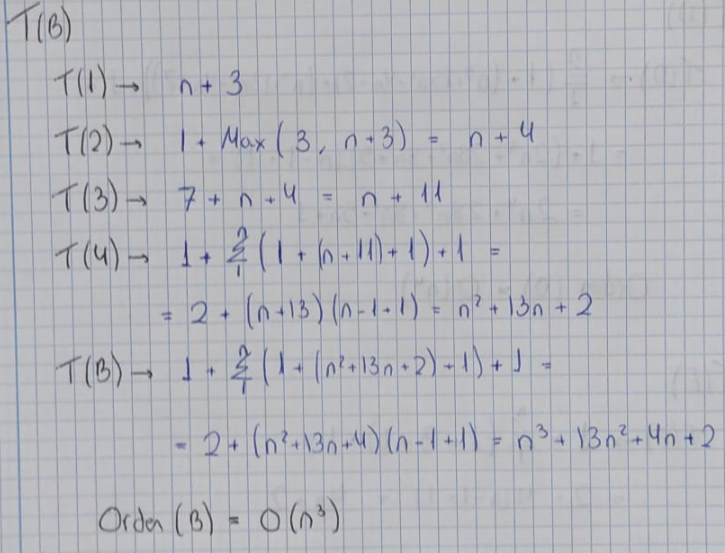 T(B)
T(1) → n + 3
T(2) → 1 + Max ( 3 , n + 3 ) = n + 4
T(3) → 7 + n + 4 = n + 11
T(4) → 1 + Σ₁ⁿ ( 1 + (n + 11) + 1 ) + 1 =
= 2 + (n+13) (n - 1 + 1) = n² + 13n + 2
T(B) → 1 + Σ₁ⁿ ( 1 + (n²+13n+2) + 1 ) + 1 =
= 2 + (n²+13n+4) (n - 1 + 1) = n³ + 13n² + 4n + 2
Orden (B) = O(n³)